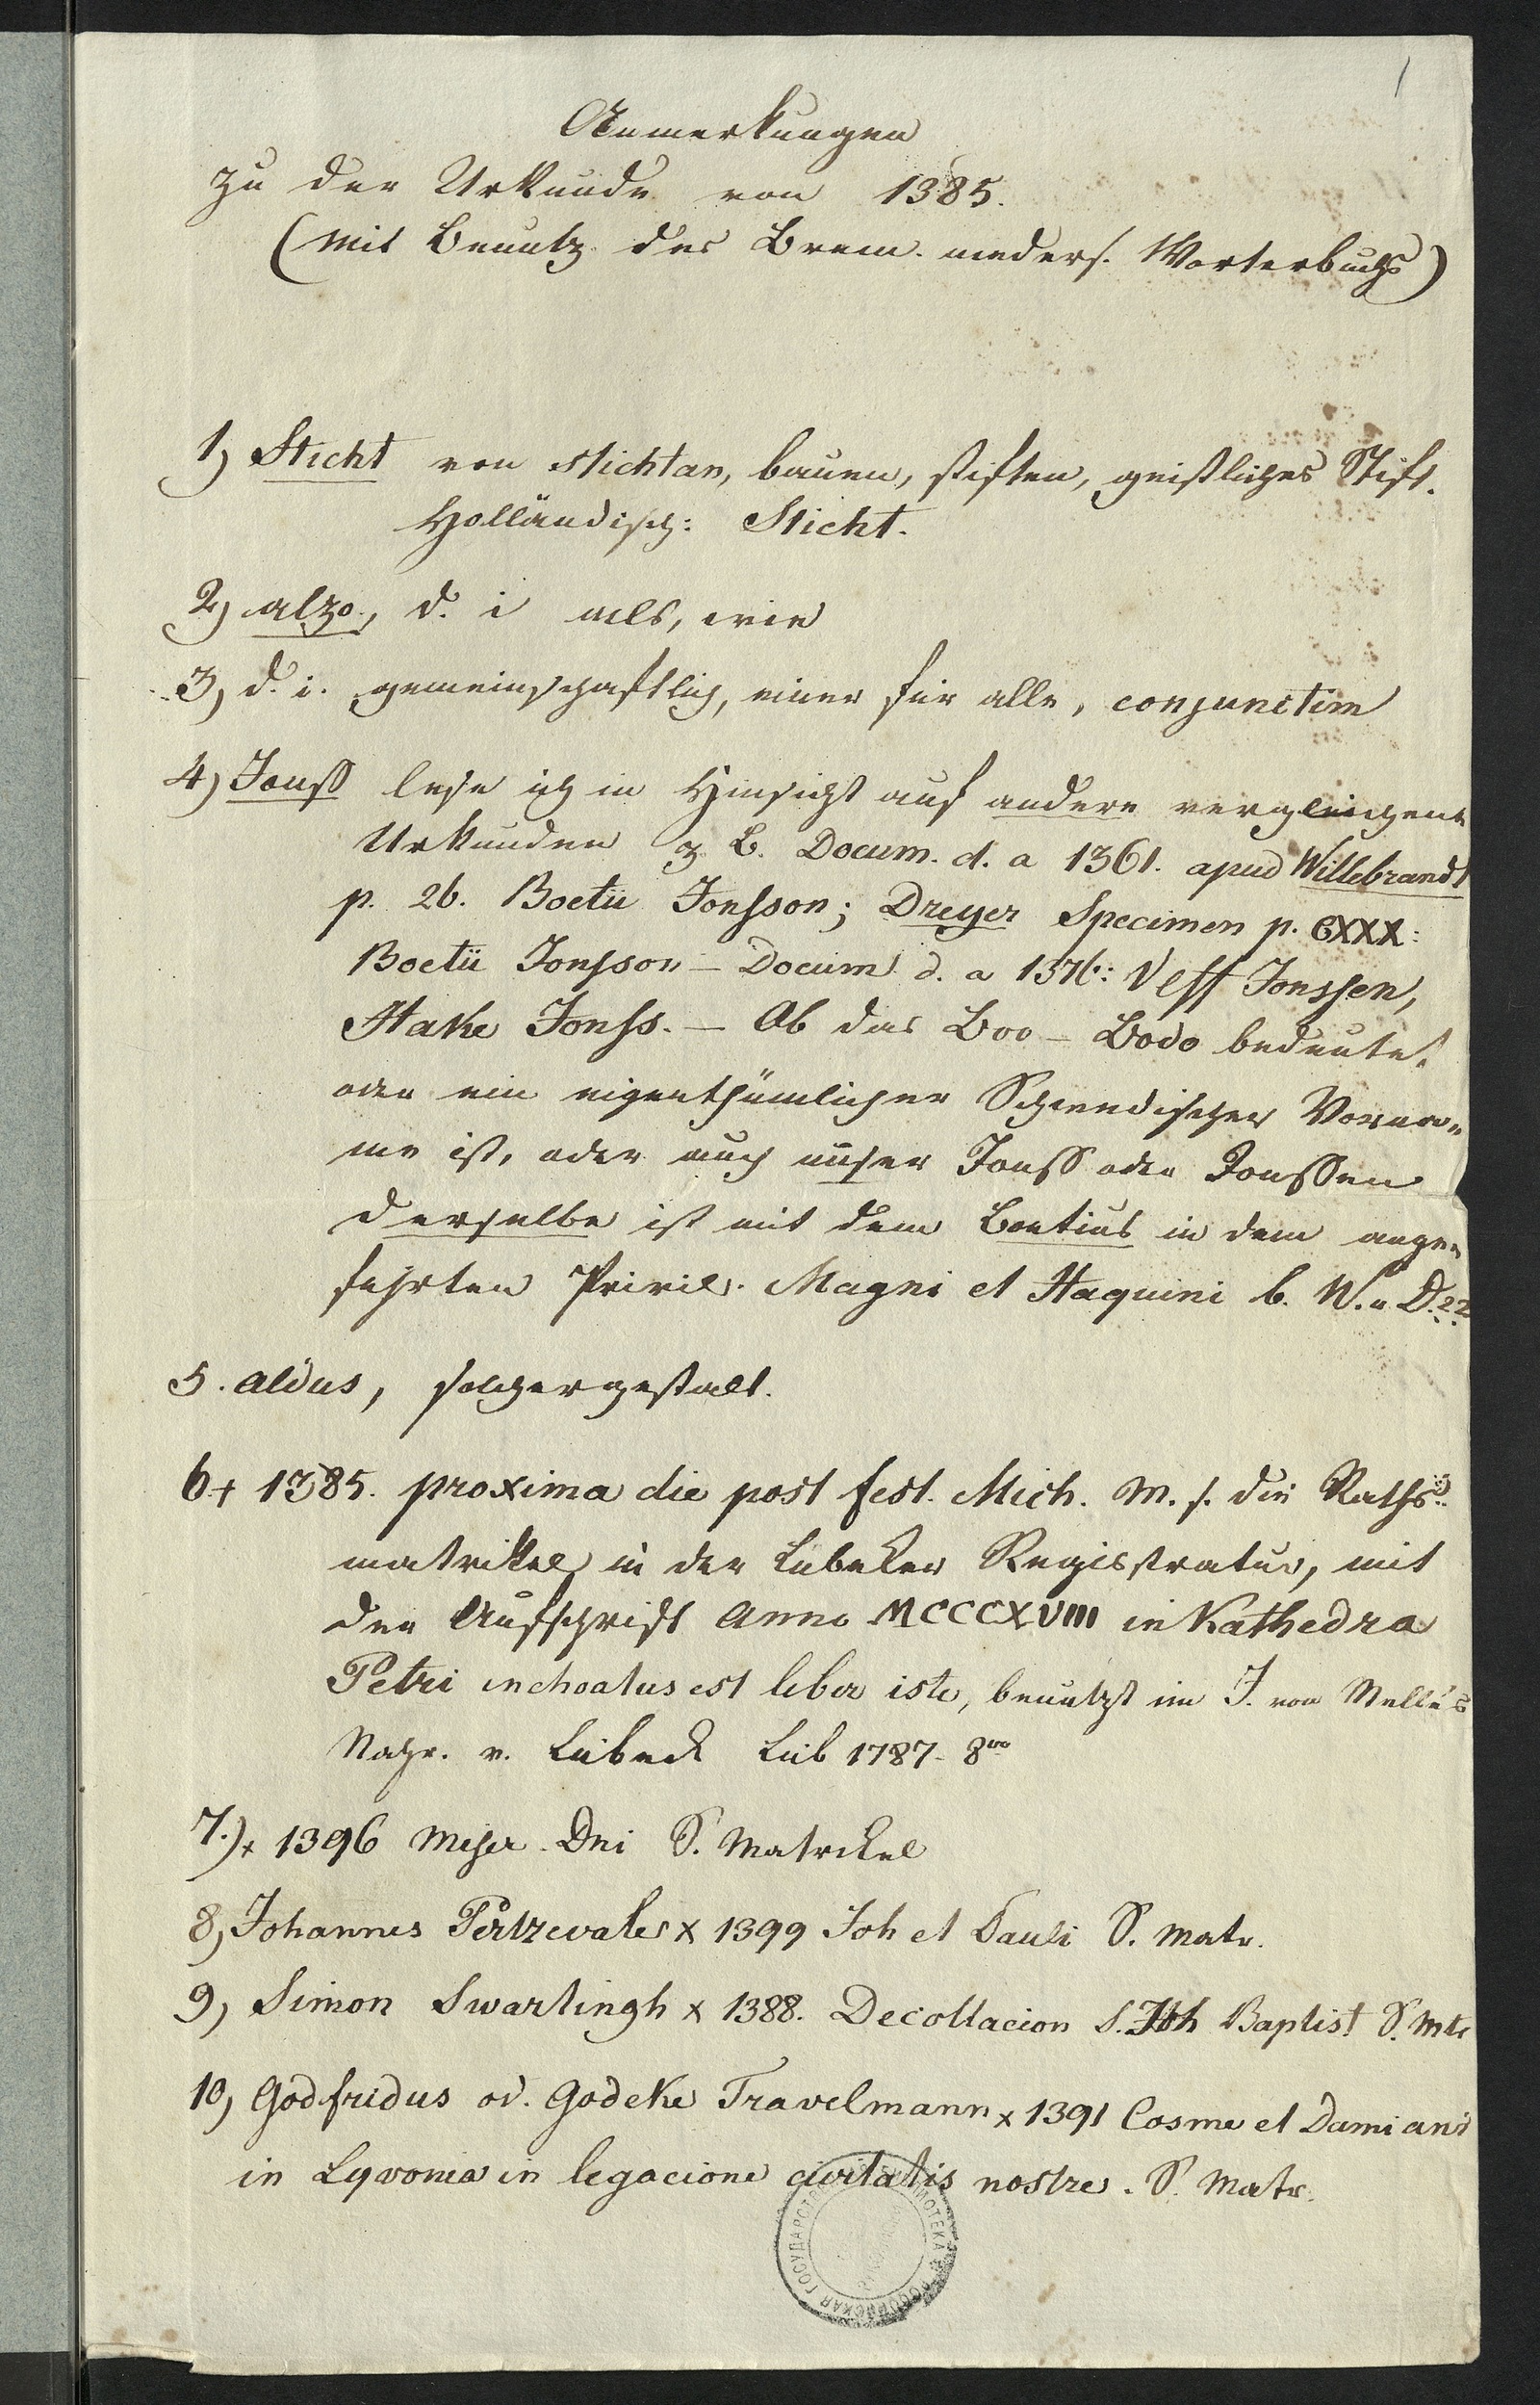 1
Anmerkungen
zu der Urkunde von 1385.
(mit Benutz. des Brem. nieders. Worterbuchs)
1) Sticht von stichtan, bauen, stiften, geistliches Stift.
Holländisch: Sticht.
2) alzo, d. i als, wie
3, d. i. gemeinschaftlich, einer für alle, conjunctim
4) Jonss lese ich in Hinsicht auf andere verglichene
Urkunden z. B. Docum. d. a 1361. apud Willebrandt
p. 26. Boetii Jonsson; Dreyer Specimen p. CXXX:
Boetii Jonsson – Docum d. a 1376: Veff Jonssen,
Hake Jonss. – Ob das Boo – Bodo bedeutet
oder ein eigenthümlicher Schwedischer Vorna-
me ist, oder auch unser Jonss oder Jonssen
derselbe ist mit dem Boetius in dem ange-
fuhrten Privil. Magni et Haquini b. W. u D.
5. aldus, solchergestalt.
6 + 1385. proxima die post fest. Mich. M. s. die Raths-
matrikel in der Lübeker Registratur, mit
der Aufschrift Anno MCCCXVIII in Kathedra
Petri inchoatus est liber iste, benutzt im J. von Melle's
Nachr. v. Lübeck Lüb 1787. 8vo
7.) + 1396 Miser. Dni S. Matrikel
8, Johannes Pertzevale x 1399 Joh et Pauli S. Matr.
9, Simon Swartingh x 1388. Decollacion S. Joh Baptist S. Mtr
10, Godfridus od. Godeke Travelmann x 1391 Cosme et Damiani
in Lyvonia in legacione civitatis nostre. S. Matr.